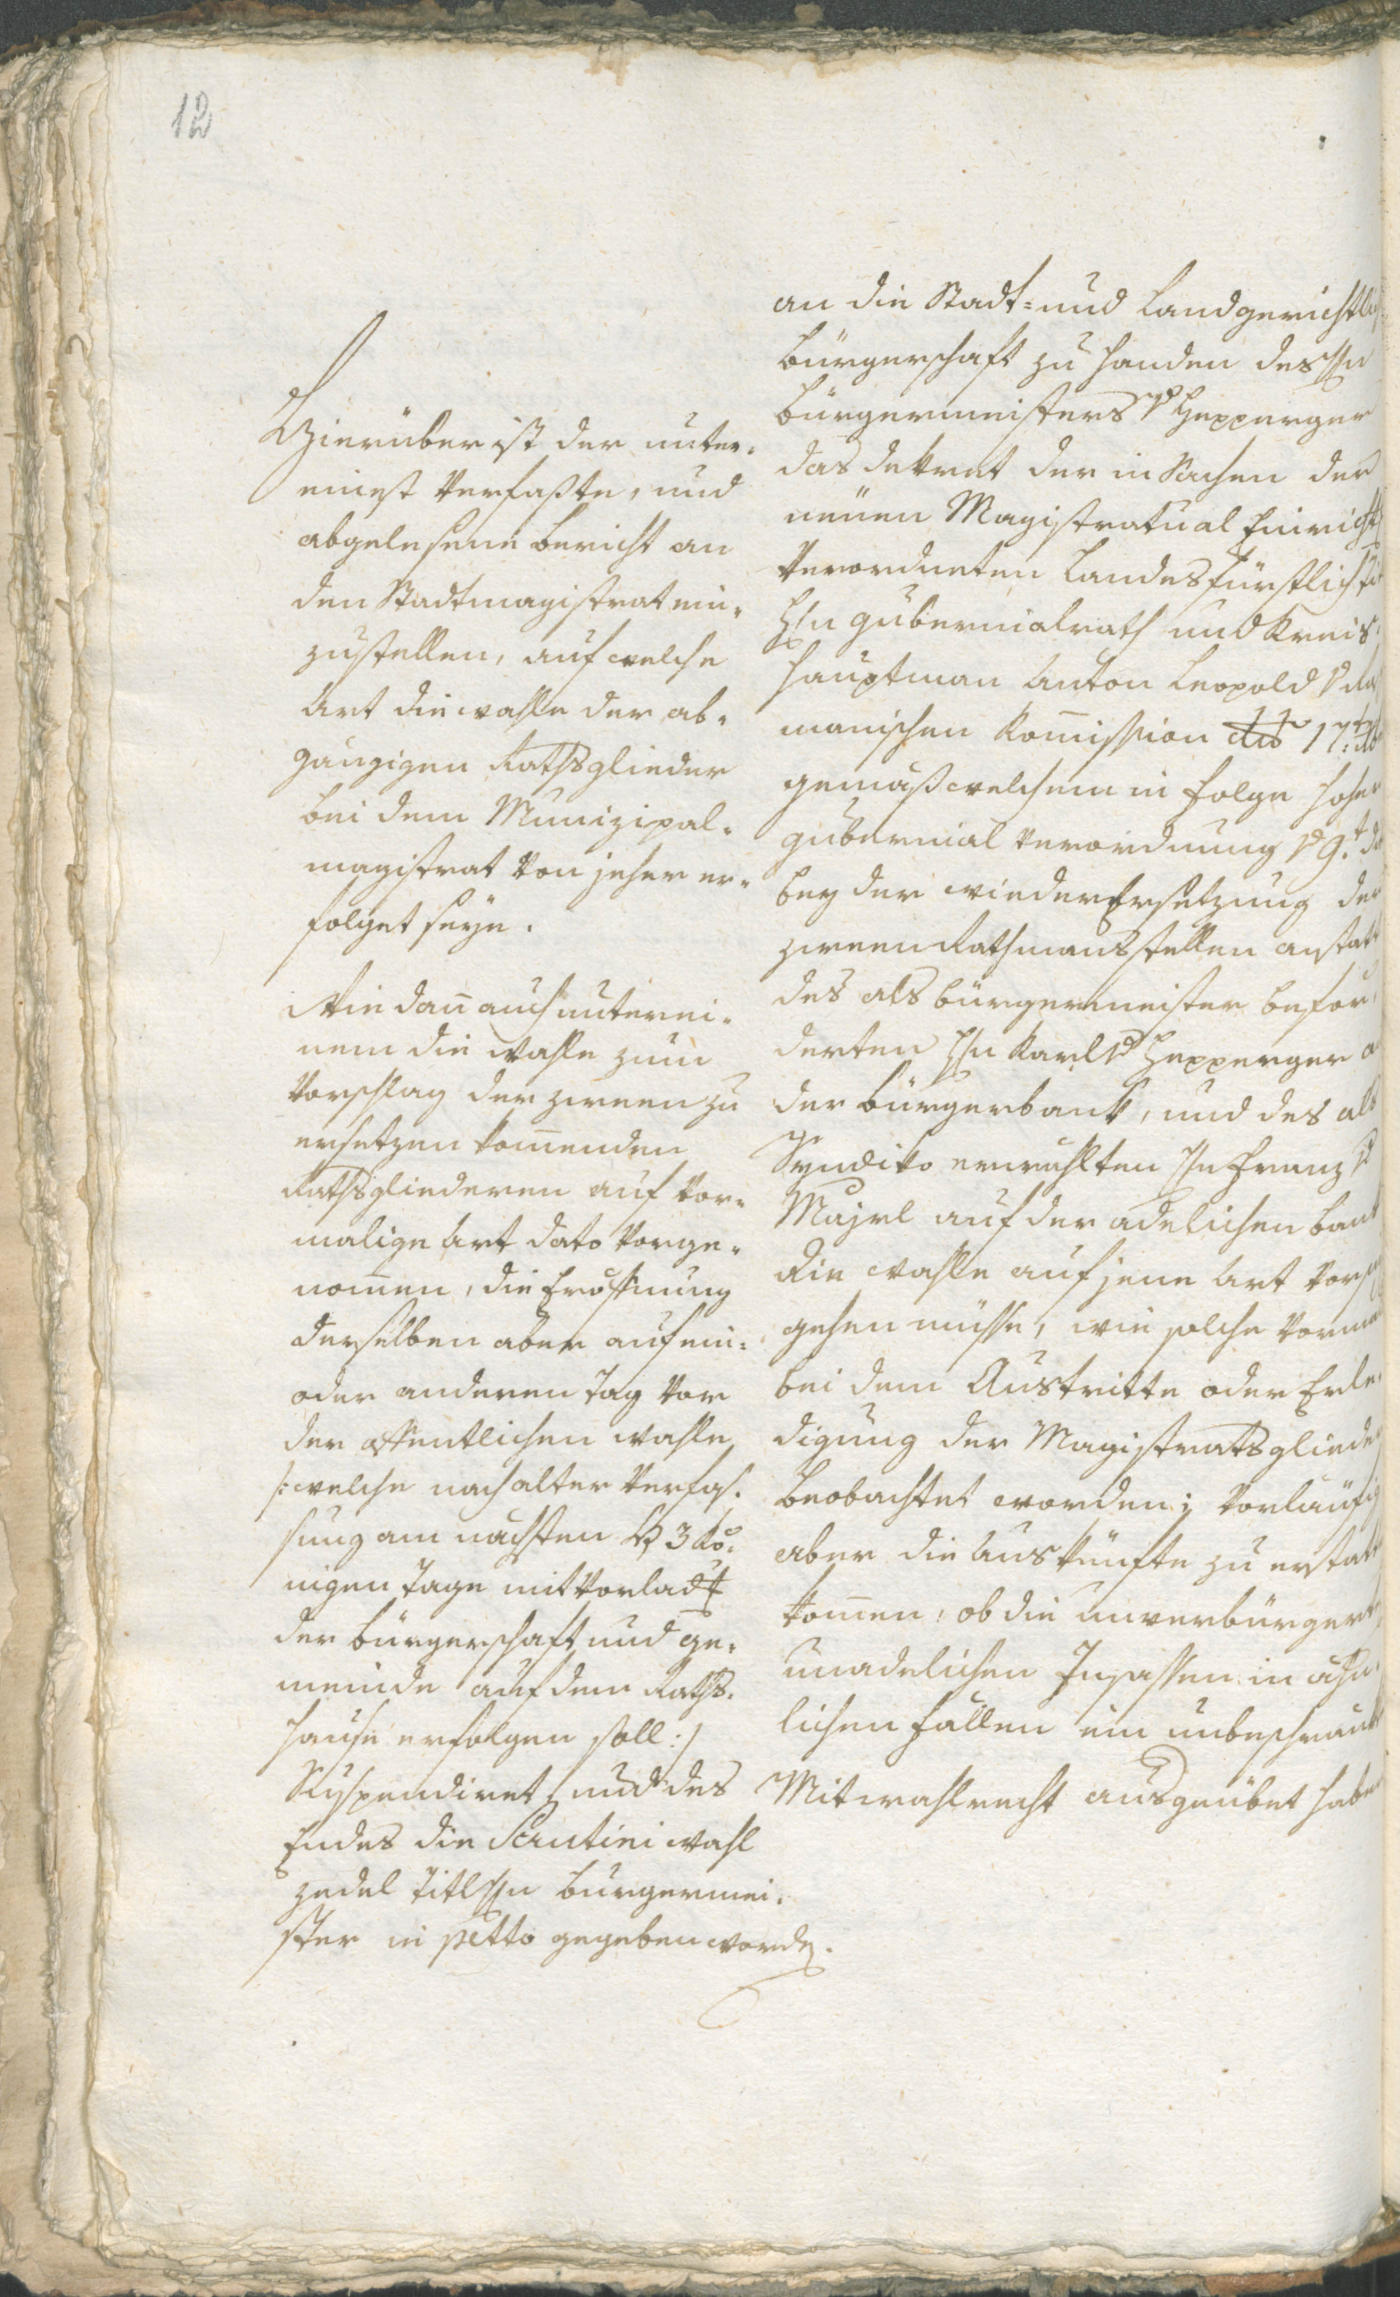 12
Hierüber ist der unter-
einest verfaßte, und
abgelesene Bericht an
den Stadtmagistrat ein-
zustellen, auf welche
Art die wahle der ab-
gängigen Rathsglieder
bei dem Munizipal-
magistrat von jeher er-
folget seye.
Wie dan̄ auch unterei-
nem die wahle zum
Vorschlag der zween zu
ersetzen kom̄enden
Rathsgliederen auf vor-
malige Art dato vorge-
nom̄en, die Eröffnung
derselben aber auf ein-
oder anderen Tag vor
der öffentlichen wahle
/: welche nach alter Verfas-
sung am nächsten H 3 Kö-
nigen Tage mit Vorlad
der Bürgerschaft und ge-
meinde auf dem Raths-
hause erfolgen soll :/
Suspendiret, und des
Endes die Scrutini wahl
zedel Titl Hn Bürgermei-
ster in petto gegeben word.
an die Stadt- und Landgerichtl
Bürgerschaft zu Handen des Hn
Bürgermeisters v Hepperger
das Dekret der in Sachen der
neüen Magistratual Einricht
verordneten Landesfürstlich
Hn Gubernialrath und Kreis-
hauptman Anton Leopold v
manischen Kom̄ission dto 17.t
gemäß welchem in Folge hoher
Gubernial Verordnung v 9.t
bey der wiederErsetzung der
zween Rathmansstellen anstatt
des als Bürgermeister beför-
derten Hn Karl v Hepperger a
der Bürgerbank, und des als
Syndiko erwählten Hn Franz v
Mayrl auf der adelichen Bank
die wahle auf jene Art vor
gehen müsse, wie solche vorma
bei dem Austritte oder Erle-
digung der Magistratsglieder
beobachtet worden; vorläufig
aber die Auskünfte zu erstatt
kom̄en, ob die unverbürgert
unadelichen Insassen in ähn-
lichen Fällen ein unbeschränkt
Mitwahlrecht ausgeübet haben